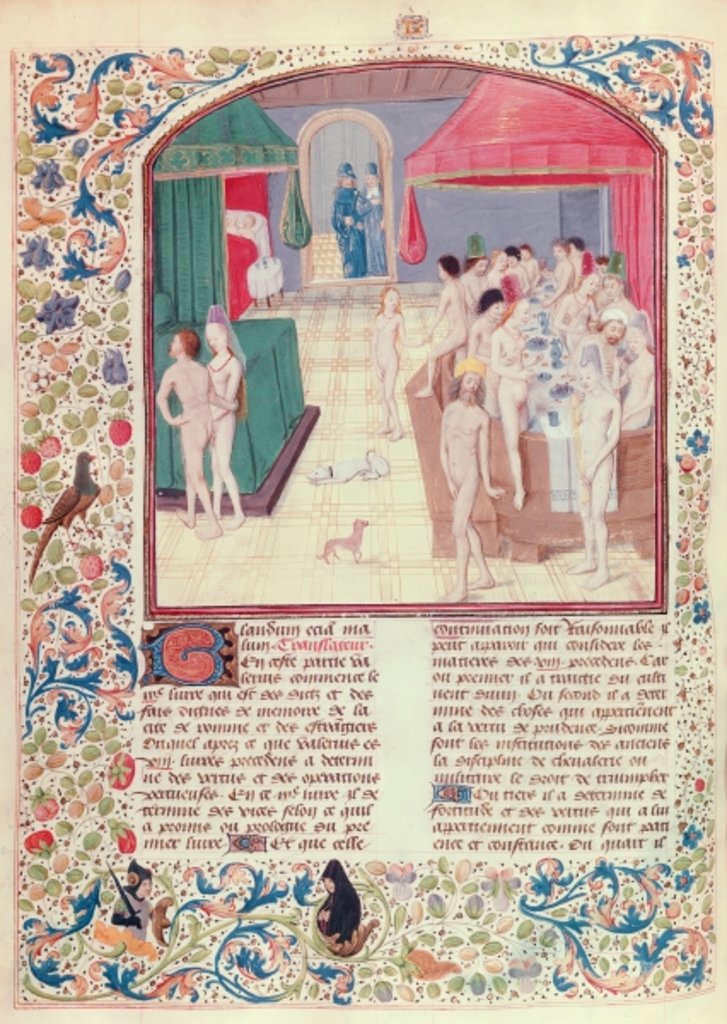 Blandum eciā ma
lum Translateur.
En ceste partie Va
lerius commence le
ixᵉ livre qui est des dictz et des
fais dignes de memoire de la
cite de romme et des estrāgiers
Ouquel apres ce que Valerius es
viii livres precedens a determi
ne des vertus et des operations
vertueuses. En ce ixᵉ livre il de
termine des vices selon ce quil
a promis ou prologue du pre
mier livre Et que celle
continuation soit raisonnable il
peut apparoir qui considere les
matieres des viii precedens Car
ou premier il a traictie du culti
vement divin Ou second il a deter
mine des choses qui appartienēt
a la vertu de prudence sicomme
sont les institutions des anciens
la discipline de chevalerie ou
militaire le droit de triumpher
Ou tiers il a determine de
fortitude et des vertus qui a lui
appartiennent comme sont paci
ence et constance. Ou quart il